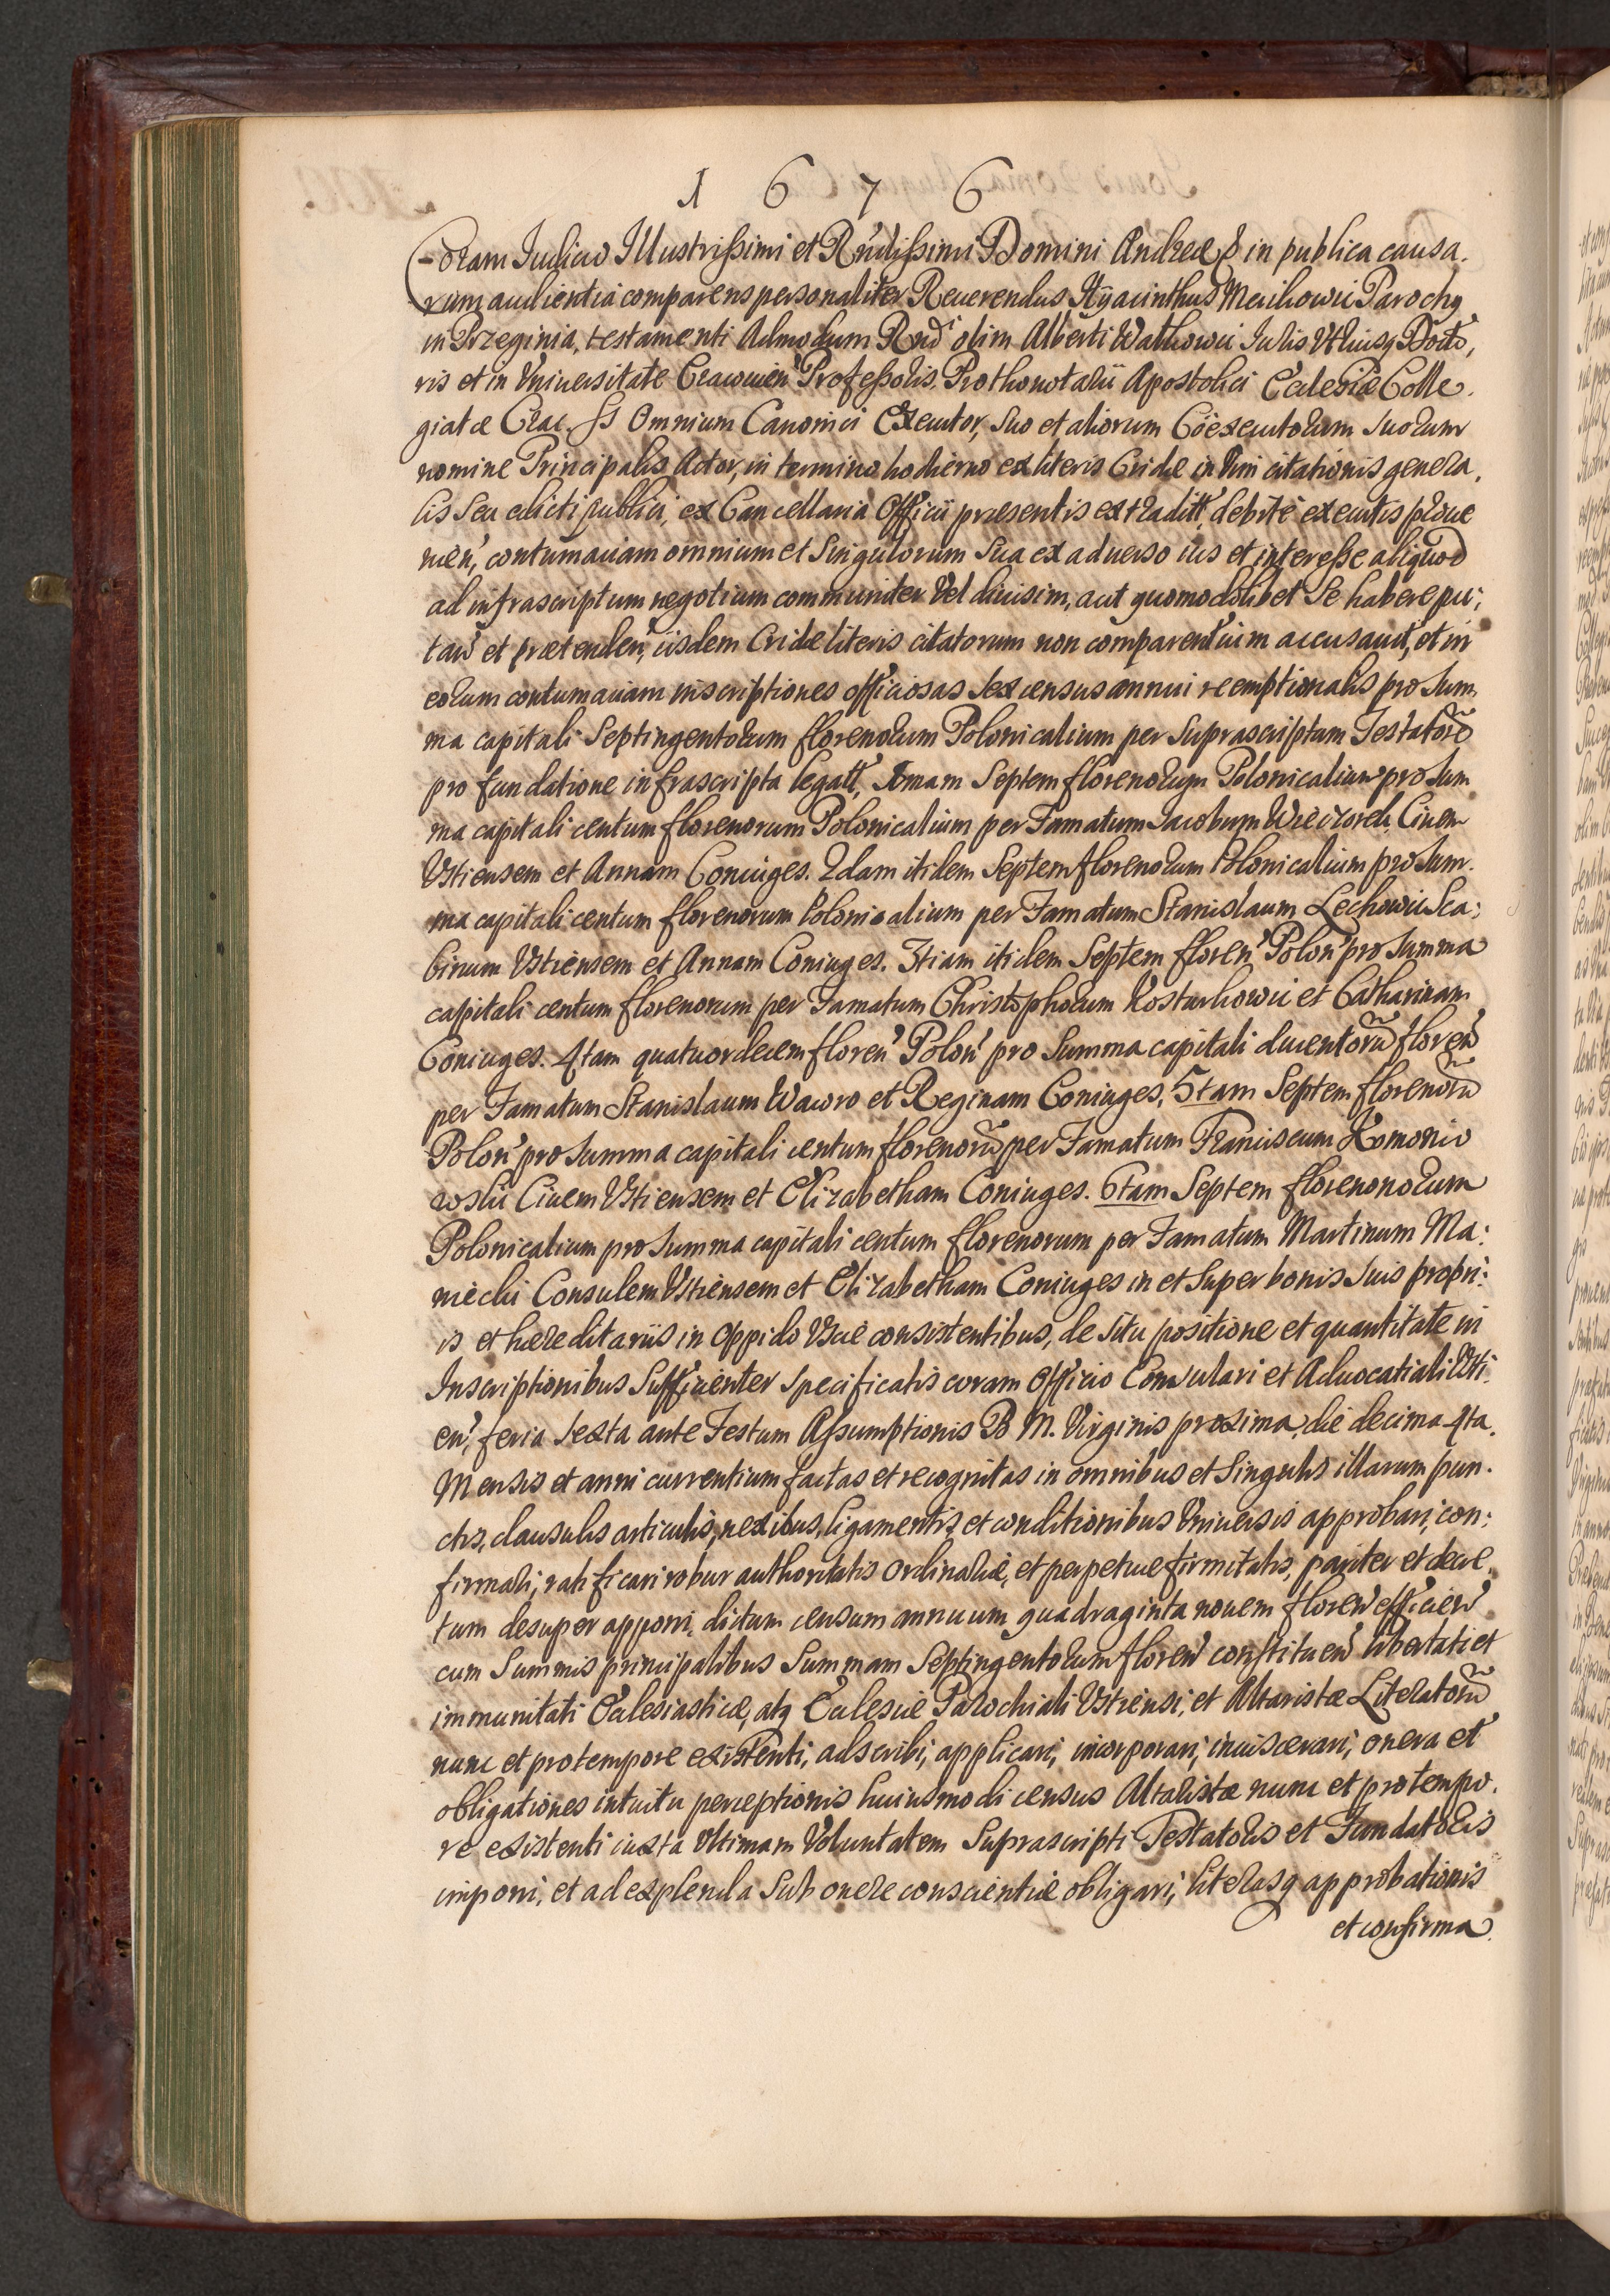 1 6 7 6
Coram Iudicio Illustrissimi et Rndissimi Domini Andreæ & in publica causa.
rum audientia comparens personaliter Reuerendus Hyacinthus Parochq
in Przeginia, testamenti Admodum Rndi olim Alberti Iuris Vtriusq Docto,
ris et in Vniuersitate Cracouien Professoris, Prothonotarii Apostolici Ecclesiæ Colle.
giatæ Crac. SS Omnium Canonici Executor, suo et aliorum Coexecutorum suorum
nomine Principalis Actor, in termino hodierno ex literis Cridæ in Vim citationis genera,
lis seu edicti publici, ex Cancellaria Officii præsentis extraditt, debite executis proue
nien, contumaciam omnium et singulorum sua ex aduerso ius et interesse aliquod
ad infrascriptum negotium communiter Vel diuisim, aut quomodolibet se habere pu;
tan et prætenden, iisdem Cridæ literis citatorum non comparentium accusauit, et in
eorum contumaciam inscriptiones officiosas sex census annui reemptionalis pro sum,
ma capitali Septingentorum florenorum Polonicalium per Suprascriptam Testatore
pro fundatione infrascripta legatt, 1mam Septem florenorum Polonicalium pro sum
ma capitali centum florenorum Polonicalium per Famatum Iacobum Wieczorek Ciuem
Vstiensem et Annam Coniuges. 2dam itidem Septem florenorum Polonicalium pro sum.
ma capitali centum florenorum Polonicalium per Famatum Stanislaum Lechowic Sca:
binum Vstiensem et Annam Coniuges. 3tiam itidem Septem floren Polon pro summa
capitali centum florenorum per Famatum Christophorum Kosturkowic et Catharinam
Coniuges. 4tam quatuordecem floren Polon pro Summa capitali ducentoru floren
per Famatum Stanislaum Wawro et Reginam Coniuges, 5tam Septem florenoru
Polon pro summa capitali centum florenoru per Famatum Franciscum Komonie
wski Ciuem Vstiensem et Elizabetham Coniuges. 6tam Septem florenonorum
Polonicalium pro summa capitali centum florenorum per Famatum Martinum Ma:
niecki Consulem Vstiensem et Elizabetham Coniuges in et super bonis suis propri:
is et hæreditariis in Oppido Vscie consistentibus, de situ positione et quantitate in
Inscriptionibus Sufficienter specificatis coram Officio Consulari et Aduocatiali Vsti.
en, feria sexta ante Festum Assumptionis B M. Virginis proxima, die decima 4ta.
Mensis et anni currentium factas et recognitas in omnibus et singulis illarum pun.
ctis, clausulis articulis, nexibus, ligamentis, et conditionibus Vniuersis approbari, con:
firmari, ratificari robur authoritatis ordinariæ, et perpetuæ firmitatis, pariter et decre,
tum desuper apponi, dictum censum annuum quadraginta nouem floren efficien
cum summis principalibus Summam Septingentorum floren constituen libertati et
immunitati Ecclesiasticæ, atq Ecclesiæ Parochiali Vstiensi, et Altaristæ Literatoru
nunc et pro tempore existenti, adscribi, applicari, incorporari, inuiscerari, onera et
obligationes intuitu perceptionis huiusmodi census Altaristæ nunc et pro tempo.
re existenti iuxta Vltimam Voluntatem Suprascripti Testatoris et Fundatoris
imponi, et ad explenda sub onere conscientiæ obligari, literasq approbationis
et confirma.